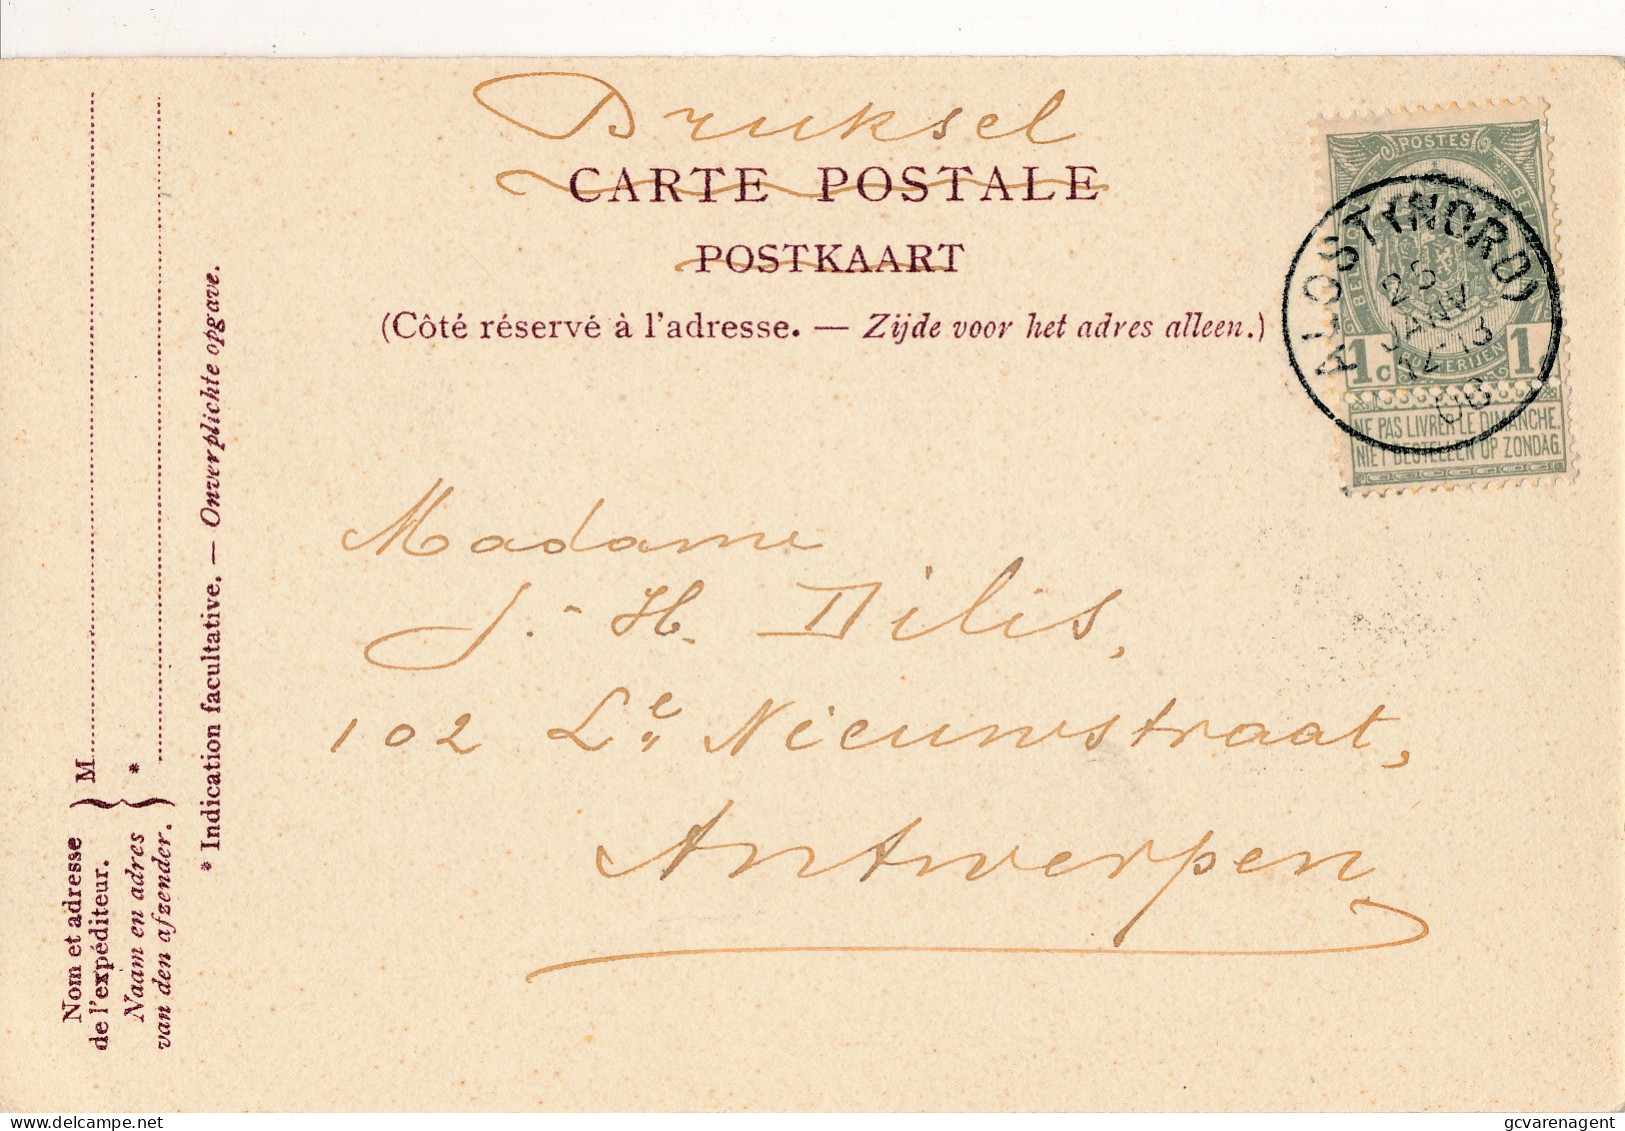 Druksel
CARTE POSTALE
POSTKAART
(Côté réservé à l'adresse. — Zijde voor het adres alleen.)
POSTES
1c 1c
NE PAS LIVRER LE DIMANCHE.
NIET BESTELLEN OP ZONDAG
ALOST (NORD)
25
JANV
12-13
06
Madame
J.-H. Dilis,
102 Lᵉ Nieuwstraat,
Antwerpen
Nom et adresse
de l'expéditeur.
M
Naam en adres
van den afzender.
*
* Indication facultative. — Onverplichte opgave.
gcvarenagent